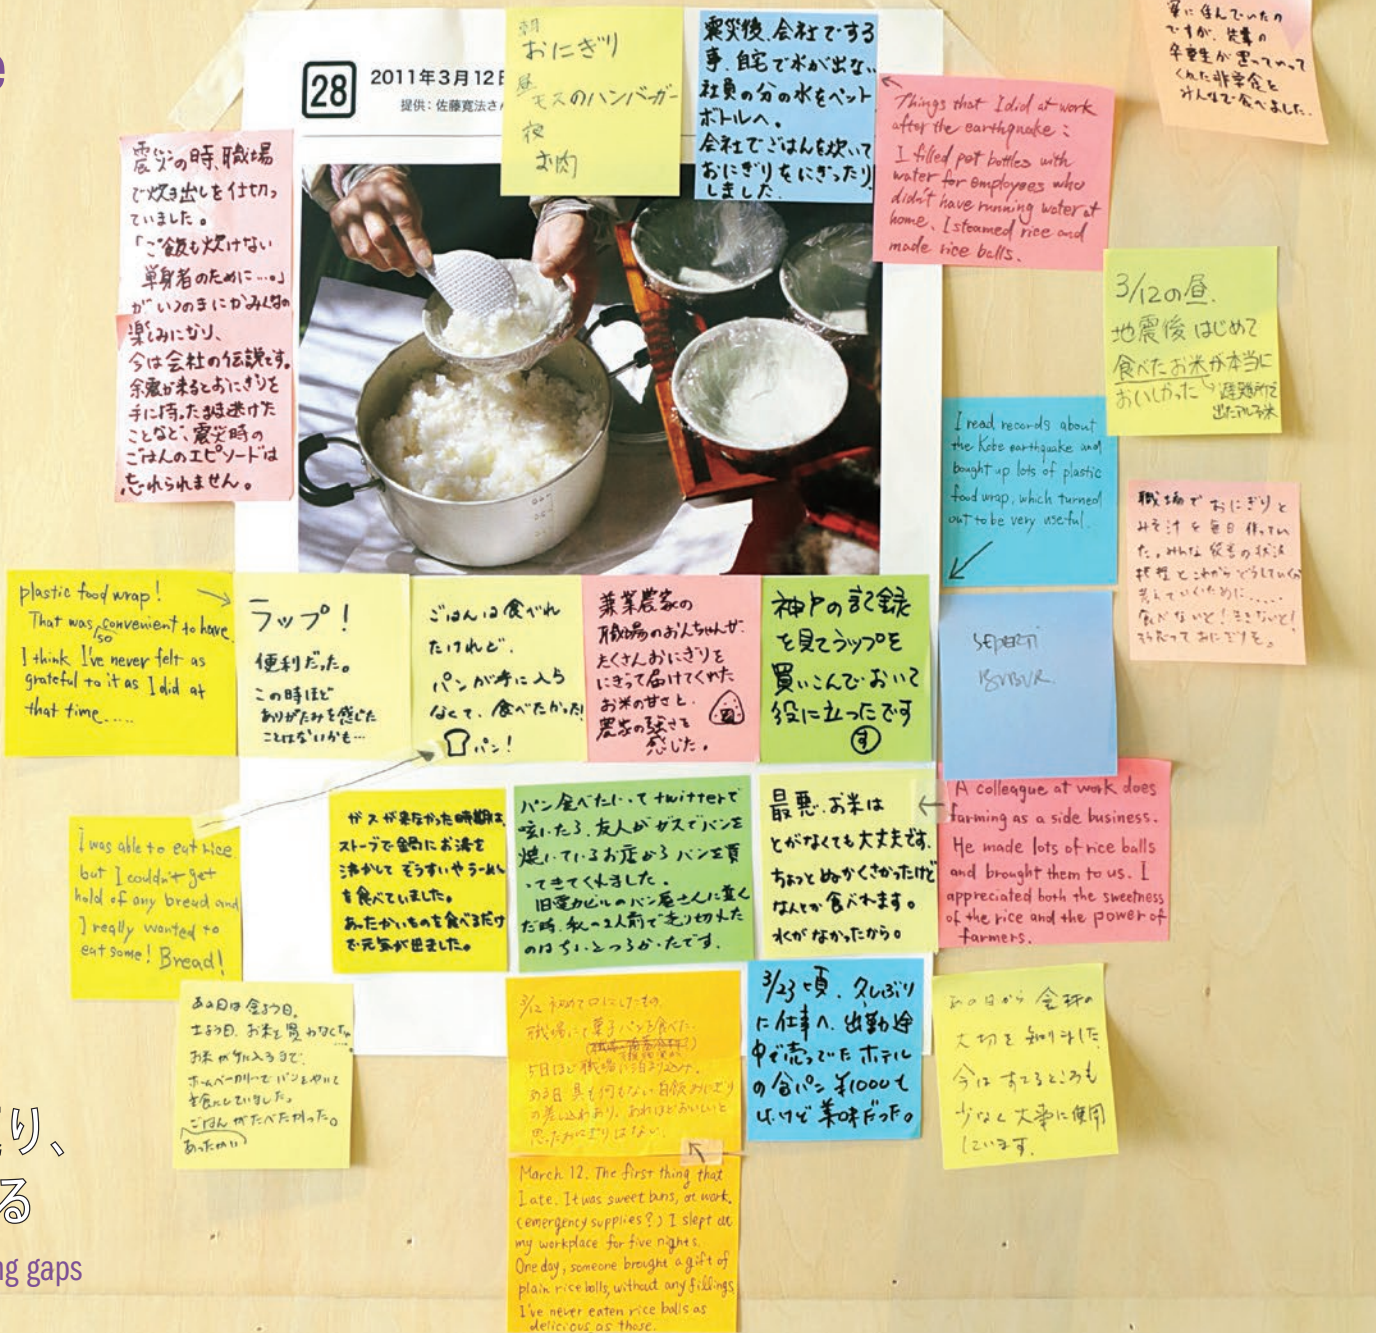 e
28
2011年3月12日
提供：佐藤寛法さん
朝
おにぎり
昼
モスのハンバーガー
夜
お肉
震災後、会社でする
事、自宅で水が出ない
社員の分の水をペット
ボトルへ。
会社でごはんを炊いて
おにぎりをにぎったり
しました。
Things that I did at work
after the earthquake :
I filled pet bottles with
water for employees who
didn't have running water at
home. I steamed rice and
made rice balls.
寮に住んでいたの
ですが、先輩の
卒業生が置っていって
くれた非常食を
みんなで食べました。
震災の時、職場
で炊き出しを仕切っ
ていました。
「ご飯も炊けない
単身者のために…。」
がいつのまにかみんなの
楽しみになり、
今は会社の伝説です。
余震が来るとおにぎりを
手に持ったまま逃げた
ことなど、震災時の
ごはんのエピソードは
忘れられません。
3/12の昼、
地震後はじめて
食べたお米が本当に
おいしかった
避難所で
出たアルファ米
I read records about
the Kobe earthquake and
bought up lots of plastic
food wrap, which turned
out to be very useful.
職場でおにぎりと
みそ汁を毎日作ってい
た。みんな災害の状況
把握とこれからどうしていくか
考えていくために.....
食べないと！生きないと！
plastic food wrap!
That was so convenient to have.
I think I've never felt as
grateful to it as I did at
that time.....
ラップ！
便利だった。
この時ほど
ありがたみを感じた
ことはないかも…
ごはんは食べれ
たけれど、
パンが手に入ら
なくて、食べたかった!
パン!
兼業農家の
職場のおんちゃんが、
たくさんおにぎりを
にぎって届けてくれた
お米の甘さと、
農家の強さを
感じた。
神戸の記録
を見てラップを
買いこんでおいて
役に立ったです
す
SEPERTI
BUBUR.
I was able to eat rice
but I couldn't get
hold of any bread and
I really wanted to
eat some! Bread!
ガスが来なかった時期は、
ストーブで鍋にお湯を
沸かしてぞうすいやラーメン
を食べていました。
あったかいものを食べるだけ
で元気が出ました。
パン食べたいってtwitterで
呟いたら、友人がガスでパンを
焼いているお店からパンを買
ってきてくれました。
旧電力ビルのパン屋さんに並ん
だ時、私の2人前で売り切れた
のはちょっとつらかったです。
最悪、お米は
とがなくても大丈夫です。
ちょっとぬかくさかったけど
なんとか食べれます。
水がなかったから。
A colleague at work does
farming as a side business.
He made lots of rice balls
and brought them to us. I
appreciated both the sweetness
of the rice and the power of
farmers.
あの日は金よう日。
土よう日、お米を買わなくちゃ…。
お米が手に入るまで、
ホームベーカリーでパンをやいて
主食にしていました。
ごはんがたべたかった。
あったかい
3/12 初めて口にしたもの。
職場にて菓子パンを食べた。
5日ほど職場に泊まり込み。
ある日 具も何もない白飯おにぎり
の差し入れあり、あれほどおいしいと
思ったおにぎりはない。
3/23頃、久しぶり
に仕事へ。出勤途
中で売ってたホテル
の食パン ¥1000も
したけど美味だった。
あの日から 食料の
大切を知りました
今は すてるところも
少なく大事に使用
しています。
March 12. The first thing that
I ate. It was sweet buns, at work.
(emergency supplies?) I slept at
my workplace for five nights.
One day, someone brought a gift of
plain rice balls, without any fillings.
I've never eaten rice balls as
delicious as those.
り、
る
ng gaps